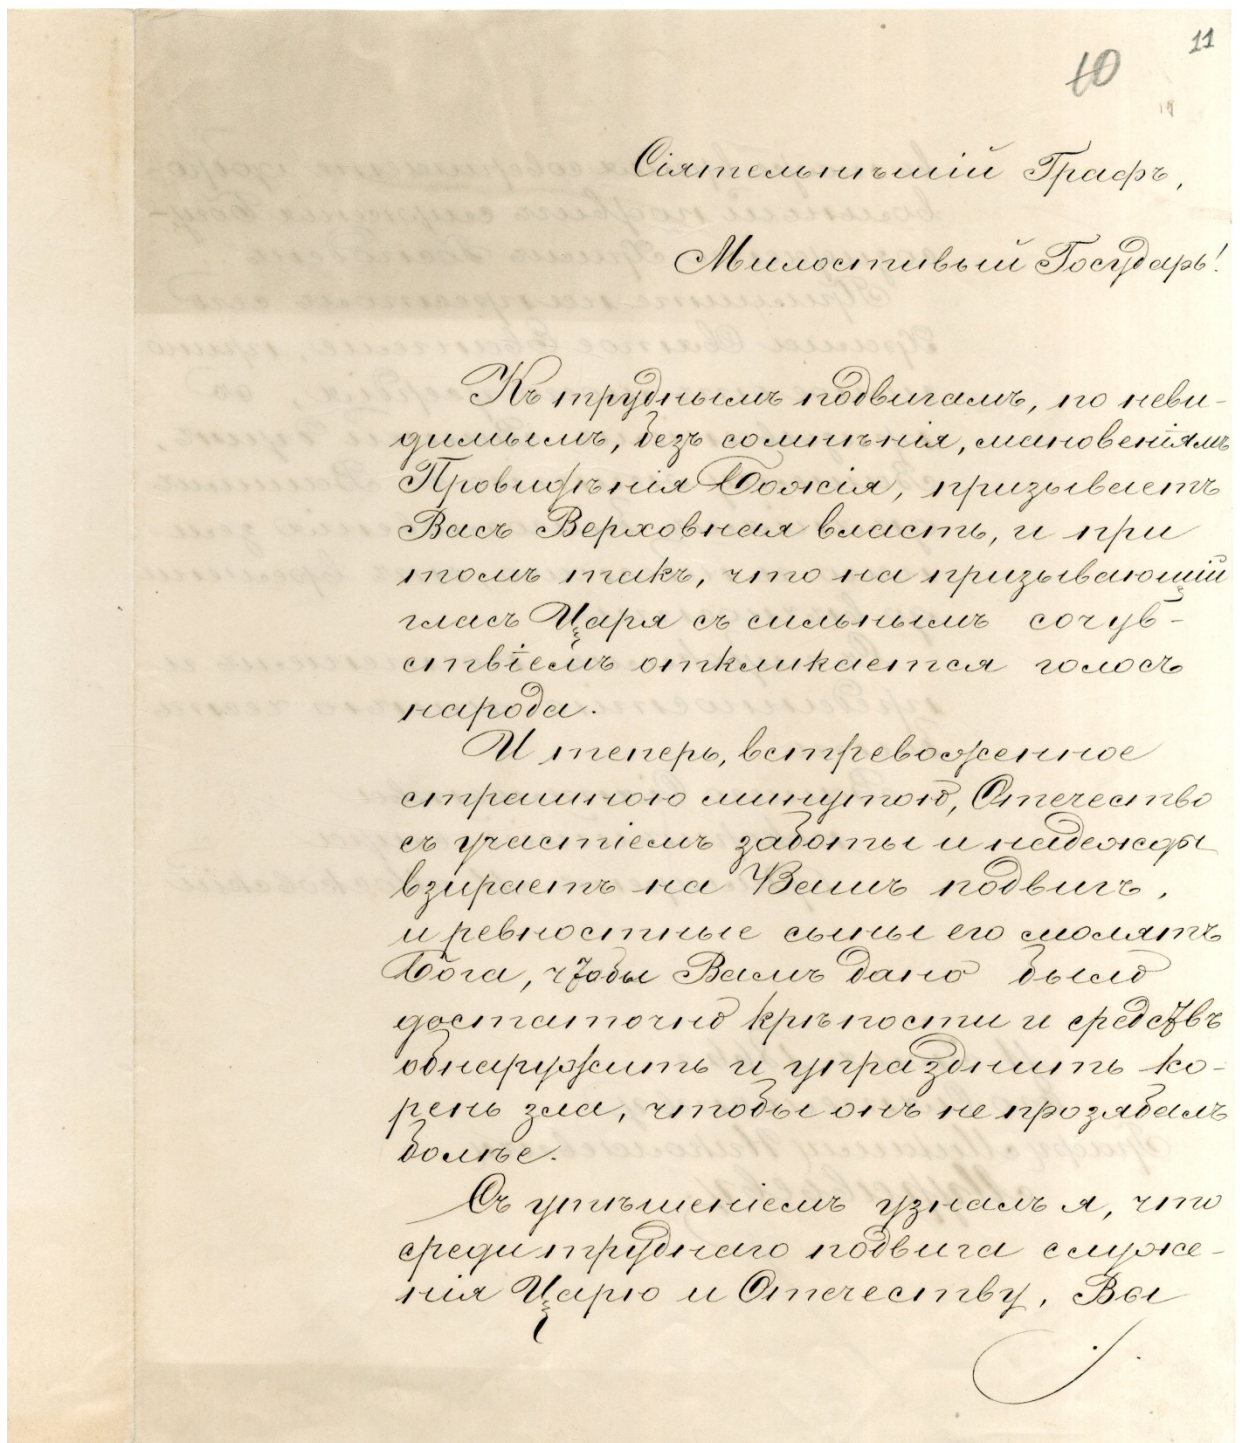 11
10
Сіятельнѣшій Графъ,
Милостивый Государь!
Къ труднымъ подвигамъ, по неви-
димымъ, безъ сомнѣнія, мановеніямъ
Провидѣнія Божія, призываетъ
Васъ Верховная власть, и при
томъ такъ, что на призывающій
гласъ Царя съ сильнымъ сочув-
ствіемъ откликается голосъ
народа.
И теперь, встревоженное
страшною минутою, Отечество
съ участіемъ заботы и надежды
взираетъ на Вашъ подвигъ,
и ревностные сыны его молятъ
Бога, чтобы Вамъ дано было
достаточно крѣпости и средствъ
обнаружить и упразднить ко-
рень зла, чтобы онъ не прозябалъ
болѣе.
Съ утѣшеніемъ узналъ я, что
среди труднаго подвига служе-
нія Царю и Отечеству, Вы